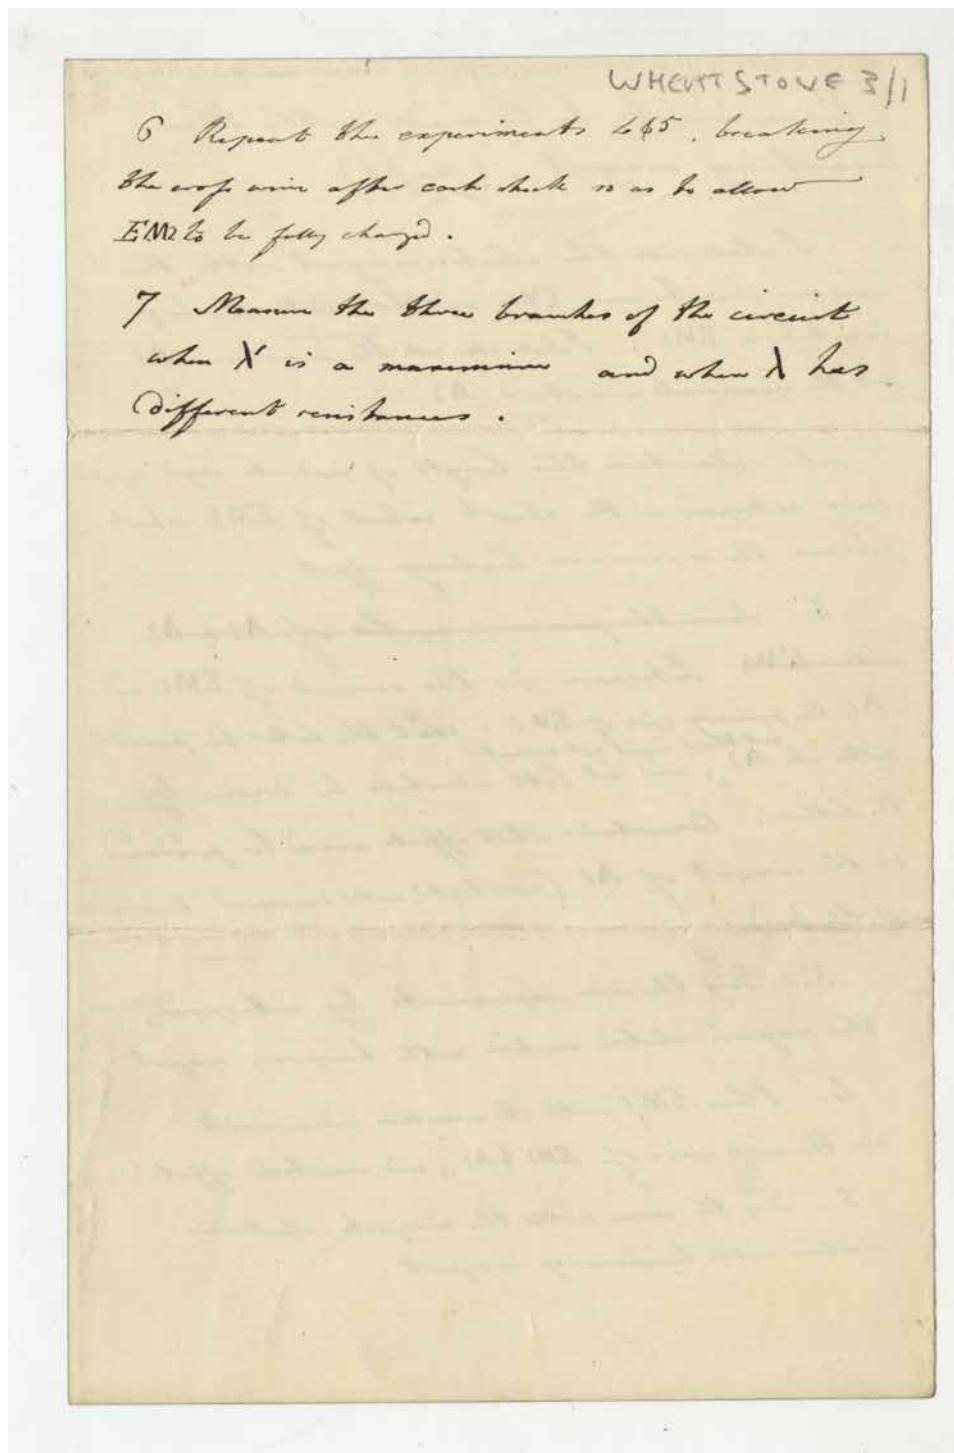 WHEATSTONE 3/1
6 Repeat the experiments 4 & 5, breaking
the cross wire after each so as to allow
EM2 to be fully charged.
7 Measure the three branches of the circuit
when λ' is a maximum and when λ has
different resistances.